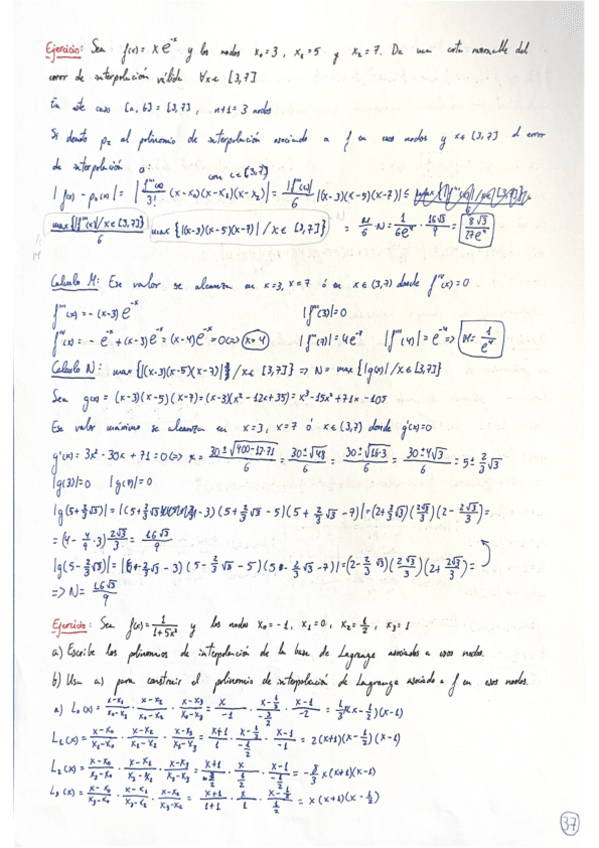 Ejercicio: Sea f(x) = x e^{-x} y los nodos x₀=3, x₁=5 y x₂=7. Da una cota razonable del
error de interpolación válida ∀x∈ [3,7]
En este caso [a,b]=[3,7], n+1=3 nodos
Si denoto p₂ al polinomio de interpolación asociado a f en esos nodos y x∈[3,7] el error
de interpolación es: con c∈[3,7]
|f(x) - p₂(x)| = |f'''(c)/3! (x-x₀)(x-x₁)(x-x₂)| = |f'''(c)|/6 |(x-3)(x-5)(x-7)| ≤
max{|f'''(x)|/x∈[3,7]}/6 max{|(x-3)(x-5)(x-7)| / x∈[3,7]} = M/6 · N = 1/(6e⁴) · 16√3/9 = 8√3/(27e⁴)
Calculo M: Ese valor se alcanza en x=3, x=7 ó en x∈(3,7) donde f''''(x)=0
f'''(x) = -(x-3)e^{-x} |f'''(3)|=0
f''''(x) = -e^{-x} + (x-3)e^{-x} = (x-4)e^{-x} = 0 <=> x=4 |f'''(7)| = 4e^{-7} |f'''(4)| = e^{-4} => M = 1/e⁴
Calculo N: max{|(x-3)(x-5)(x-7)| / x∈[3,7]} => N = max{|g(x)| / x∈[3,7]}
Sea g(x) = (x-3)(x-5)(x-7) = (x-3)(x²-12x+35) = x³-15x²+71x-105
Ese valor máximo se alcanza en x=3, x=7 ó x∈(3,7) donde g'(x)=0
g'(x) = 3x²-30x+71=0 => x = (30±√(900-12·71))/6 = (30±√48)/6 = (30±√(16·3))/6 = (30±4√3)/6 = 5±2/3√3
|g(3)|=0 |g(7)|=0
|g(5+2/3√3)| = |(5+2/3√3-3)(5+2/3√3-5)(5+2/3√3-7)| = (2+2/3√3)(2√3/3)(2-2√3/3) =
= (4-4/9·3)2√3/3 = 16√3/9
|g(5-2/3√3)| = |(5-2/3√3-3)(5-2/3√3-5)(5-2/3√3-7)| = (2-2/3√3)(2√3/3)(2+2√3/3) =
=> N = 16√3/9
Ejercicio: Sea f(x) = 1/(1+5x²) y los nodos x₀=-1, x₁=0, x₂=1/2, x₃=1
a) Escribe los polinomios de interpolación de la base de Lagrange asociados a esos nodos.
b) Usa a) para construir el polinomio de interpolación de Lagrange asociado a f en esos nodos.
a) L₀(x) = (x-x₁)/(x₀-x₁) · (x-x₂)/(x₀-x₂) · (x-x₃)/(x₀-x₃) = x/-1 · (x-1/2)/(-3/2) · (x-1)/-2 = -1/3 x(x-1/2)(x-1)
L₁(x) = (x-x₀)/(x₁-x₀) · (x-x₂)/(x₁-x₂) · (x-x₃)/(x₁-x₃) = (x+1)/1 · (x-1/2)/(-1/2) · (x-1)/-1 = 2(x+1)(x-1/2)(x-1)
L₂(x) = (x-x₀)/(x₂-x₀) · (x-x₁)/(x₂-x₁) · (x-x₃)/(x₂-x₃) = (x+1)/(3/2) · x/(1/2) · (x-1)/(-1/2) = -8/3 x(x+1)(x-1)
L₃(x) = (x-x₀)/(x₃-x₀) · (x-x₁)/(x₃-x₁) · (x-x₂)/(x₃-x₂) = (x+1)/(1+1) · x/1 · (x-1/2)/(1/2) = x(x+1)(x-1/2)
37